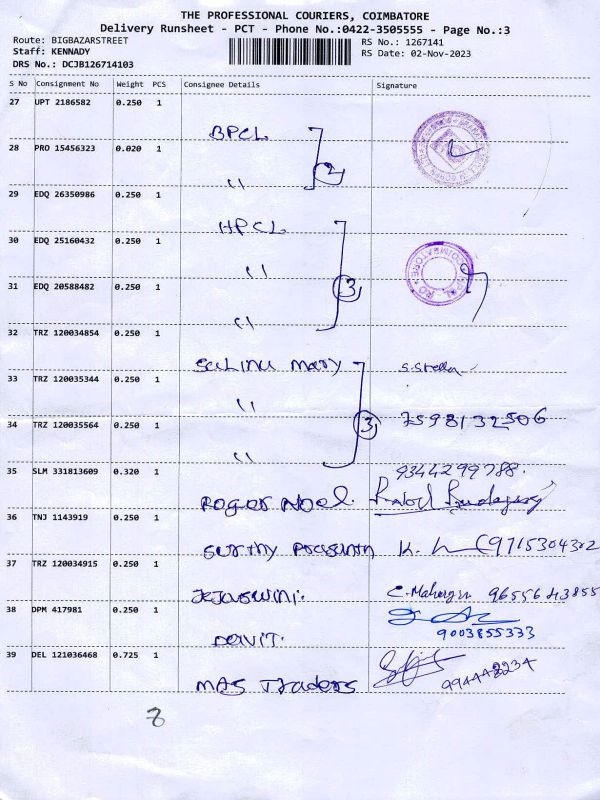 THE PROFESSIONAL COURIERS, COIMBATORE
Delivery Runsheet - PCT - Phone No.:0422-3505555 - Page No.:3
Route: BIGBAZARSTREET
Staff: KENNADY
DRS No.: DCJB126714103
RS No.: 1267141
RS Date: 02-Nov-2023
S No Consignment No Weight PCS Consignee Details Signature
27 UPT 2186582 0.250 1 BPCL
28 PRO 15456323 0.020 1 " 2
29 EDQ 26350986 0.250 1 HPCL
30 EDQ 25160432 0.250 1 "
COIMBATORE
31 EDQ 20588482 0.250 1 " 3
32 TRZ 120034854 0.250 1 Selinu mary S. Stella
33 TRZ 120035344 0.250 1 "
34 TRZ 120035564 0.250 1 " 3 7598132506
35 SLM 331813609 0.320 1 Roger Noel. 9344299788.
36 TNJ 1143919 0.250 1 K. (9715304302
37 TRZ 120034915 0.250 1 9655643855
38 DPM 417981 0.250 1 Davit. 9003855333
39 DEL 121036468 0.725 1 MAS Traders